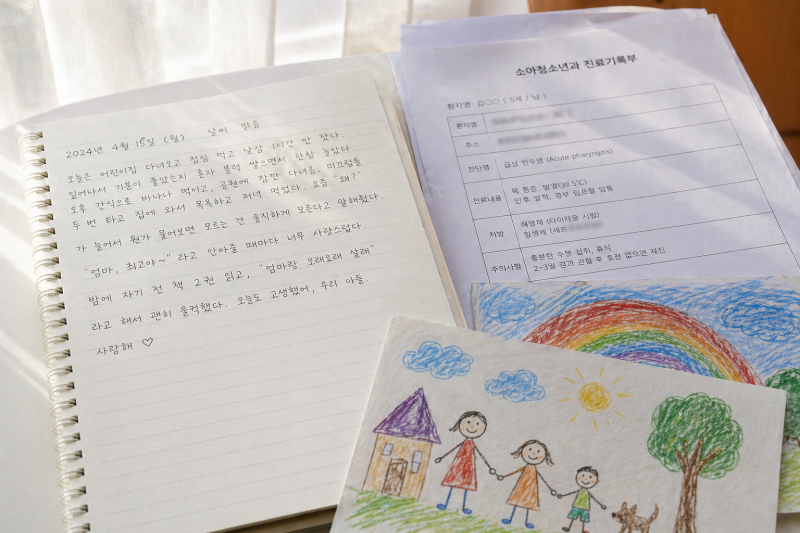 2024년 4월 15일 (월) 날씨 맑음
오늘은 어린이집 다녀오고 점심 먹고 낮잠 1시간 반 잤다.
일어나서 기분이 좋았는지 혼자 블럭 쌓으면서 한참 놀았다.
오후 간식으로 바나나 먹이고, 공원에 잠깐 다녀옴. 미끄럼틀
두 번 타고 집에 와서 목욕하고 저녁 먹었다. 요즘 "왜?"
가 늘어서 뭔가 물어보면 모르는 건 솔직하게 모른다고 말해줬다.
"엄마, 최고야~" 라고 안아줄 때마다 너무 사랑스럽다.
밤에 자기 전 책 2권 읽고, "엄마랑 오래오래 살래"
라고 해서 괜히 울컥했다. 오늘도 고생했어, 우리 아들.
사랑해 ♡
소아청소년과 진료기록부
환자명: 김○○ ( 5세 / 남 )
환자명
주소
진단명 급성 인두염 (Acute pharyngitis)
진료내용 목 통증, 발열(38.5℃)
인후 발적, 경부 림프절 압통
처방 해열제 (타이레놀 시럽)
항생제 (세프
주의사항 충분한 수분 섭취, 휴식
2~3일 경과 관찰 후 호전 없으면 재진